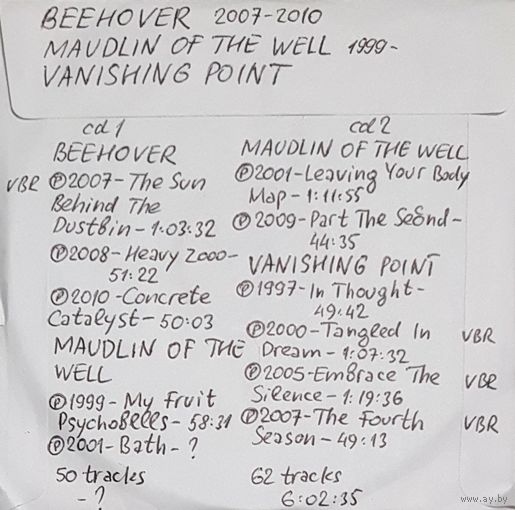 BEEHOVER 2007-2010
MAUDLIN OF THE WELL 1999-
VANISHING POINT
cd1
BEEHOVER
VBR ℗2007-The Sun
Behind The
Dustbin-1:03:32
℗2008-Heavy Zooo-
51:22
℗2010-Concrete
Catalyst-50:03
MAUDLIN OF THE
WELL
℗1999-My Fruit
Psychobells-58:31
℗2001-Bath-?
50 tracks
-?
cd2
MAUDLIN OF THE WELL
℗2001-Leaving Your Body
Map-1:11:55
℗2009-Part The Second-
44:35
VANISHING POINT
℗1997-In Thought-
49:42
℗2000-Tangled In VBR
Dream-1:07:32
℗2005-Embrace The VBR
Silence-1:19:36
℗2007-The Fourth VBR
Season-49:13
62 tracks
6:02:35
www.ay.by